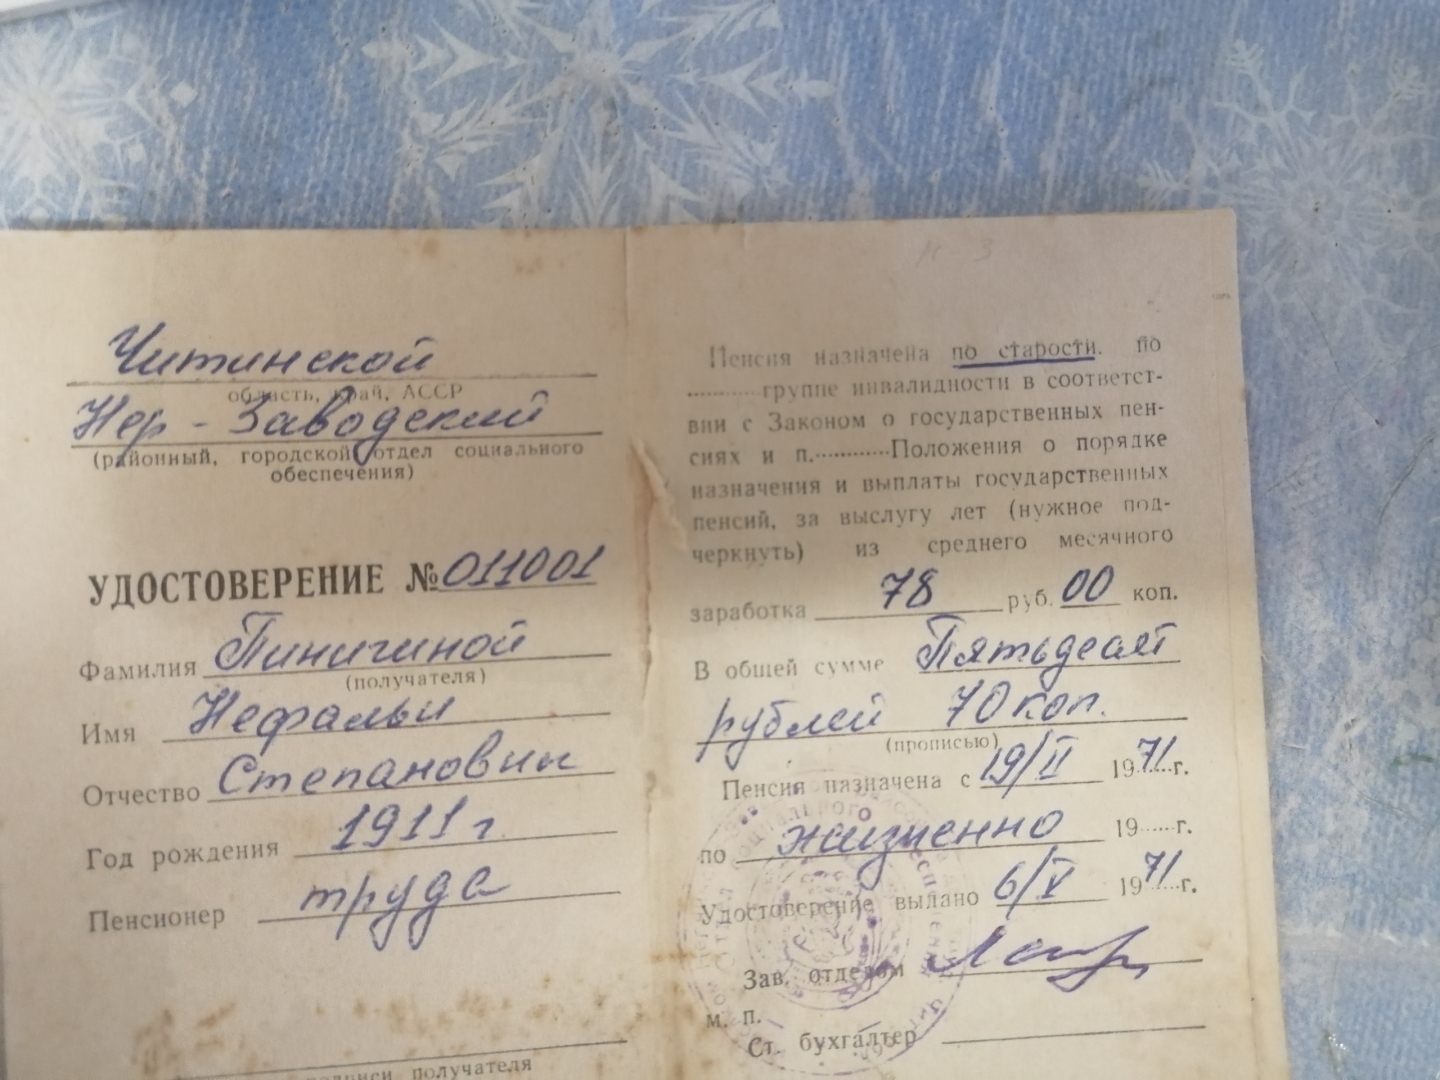 Читинской
область, край, АССР
Нер-Заводский
(районный, городской отдел социального
обеспечения)
УДОСТОВЕРЕНИЕ №011001
Фамилия Пинигиной
(получателя)
Имя Нефальи
Отчество Степановны
Год рождения 1911 г
Пенсионер труда
подписи получателя
Пенсия назначена по старости. по
...........группе инвалидности в соответст-
вии с Законом о государственных пен-
сиях и п............Положения о порядке
назначения и выплаты государственных
пенсий, за выслугу лет (нужное под-
черкнуть) из среднего месячного
заработка 78 руб. 00 коп.
В общей сумме Пятьдесят
рублей 70 коп.
(прописью)
Пенсия назначена с 19/II 1971 г.
по жизненно 19......г.
Удостоверение выдано 6/V 1971 г.
Зав. отделом
м. п.
Ст. бухгалтер